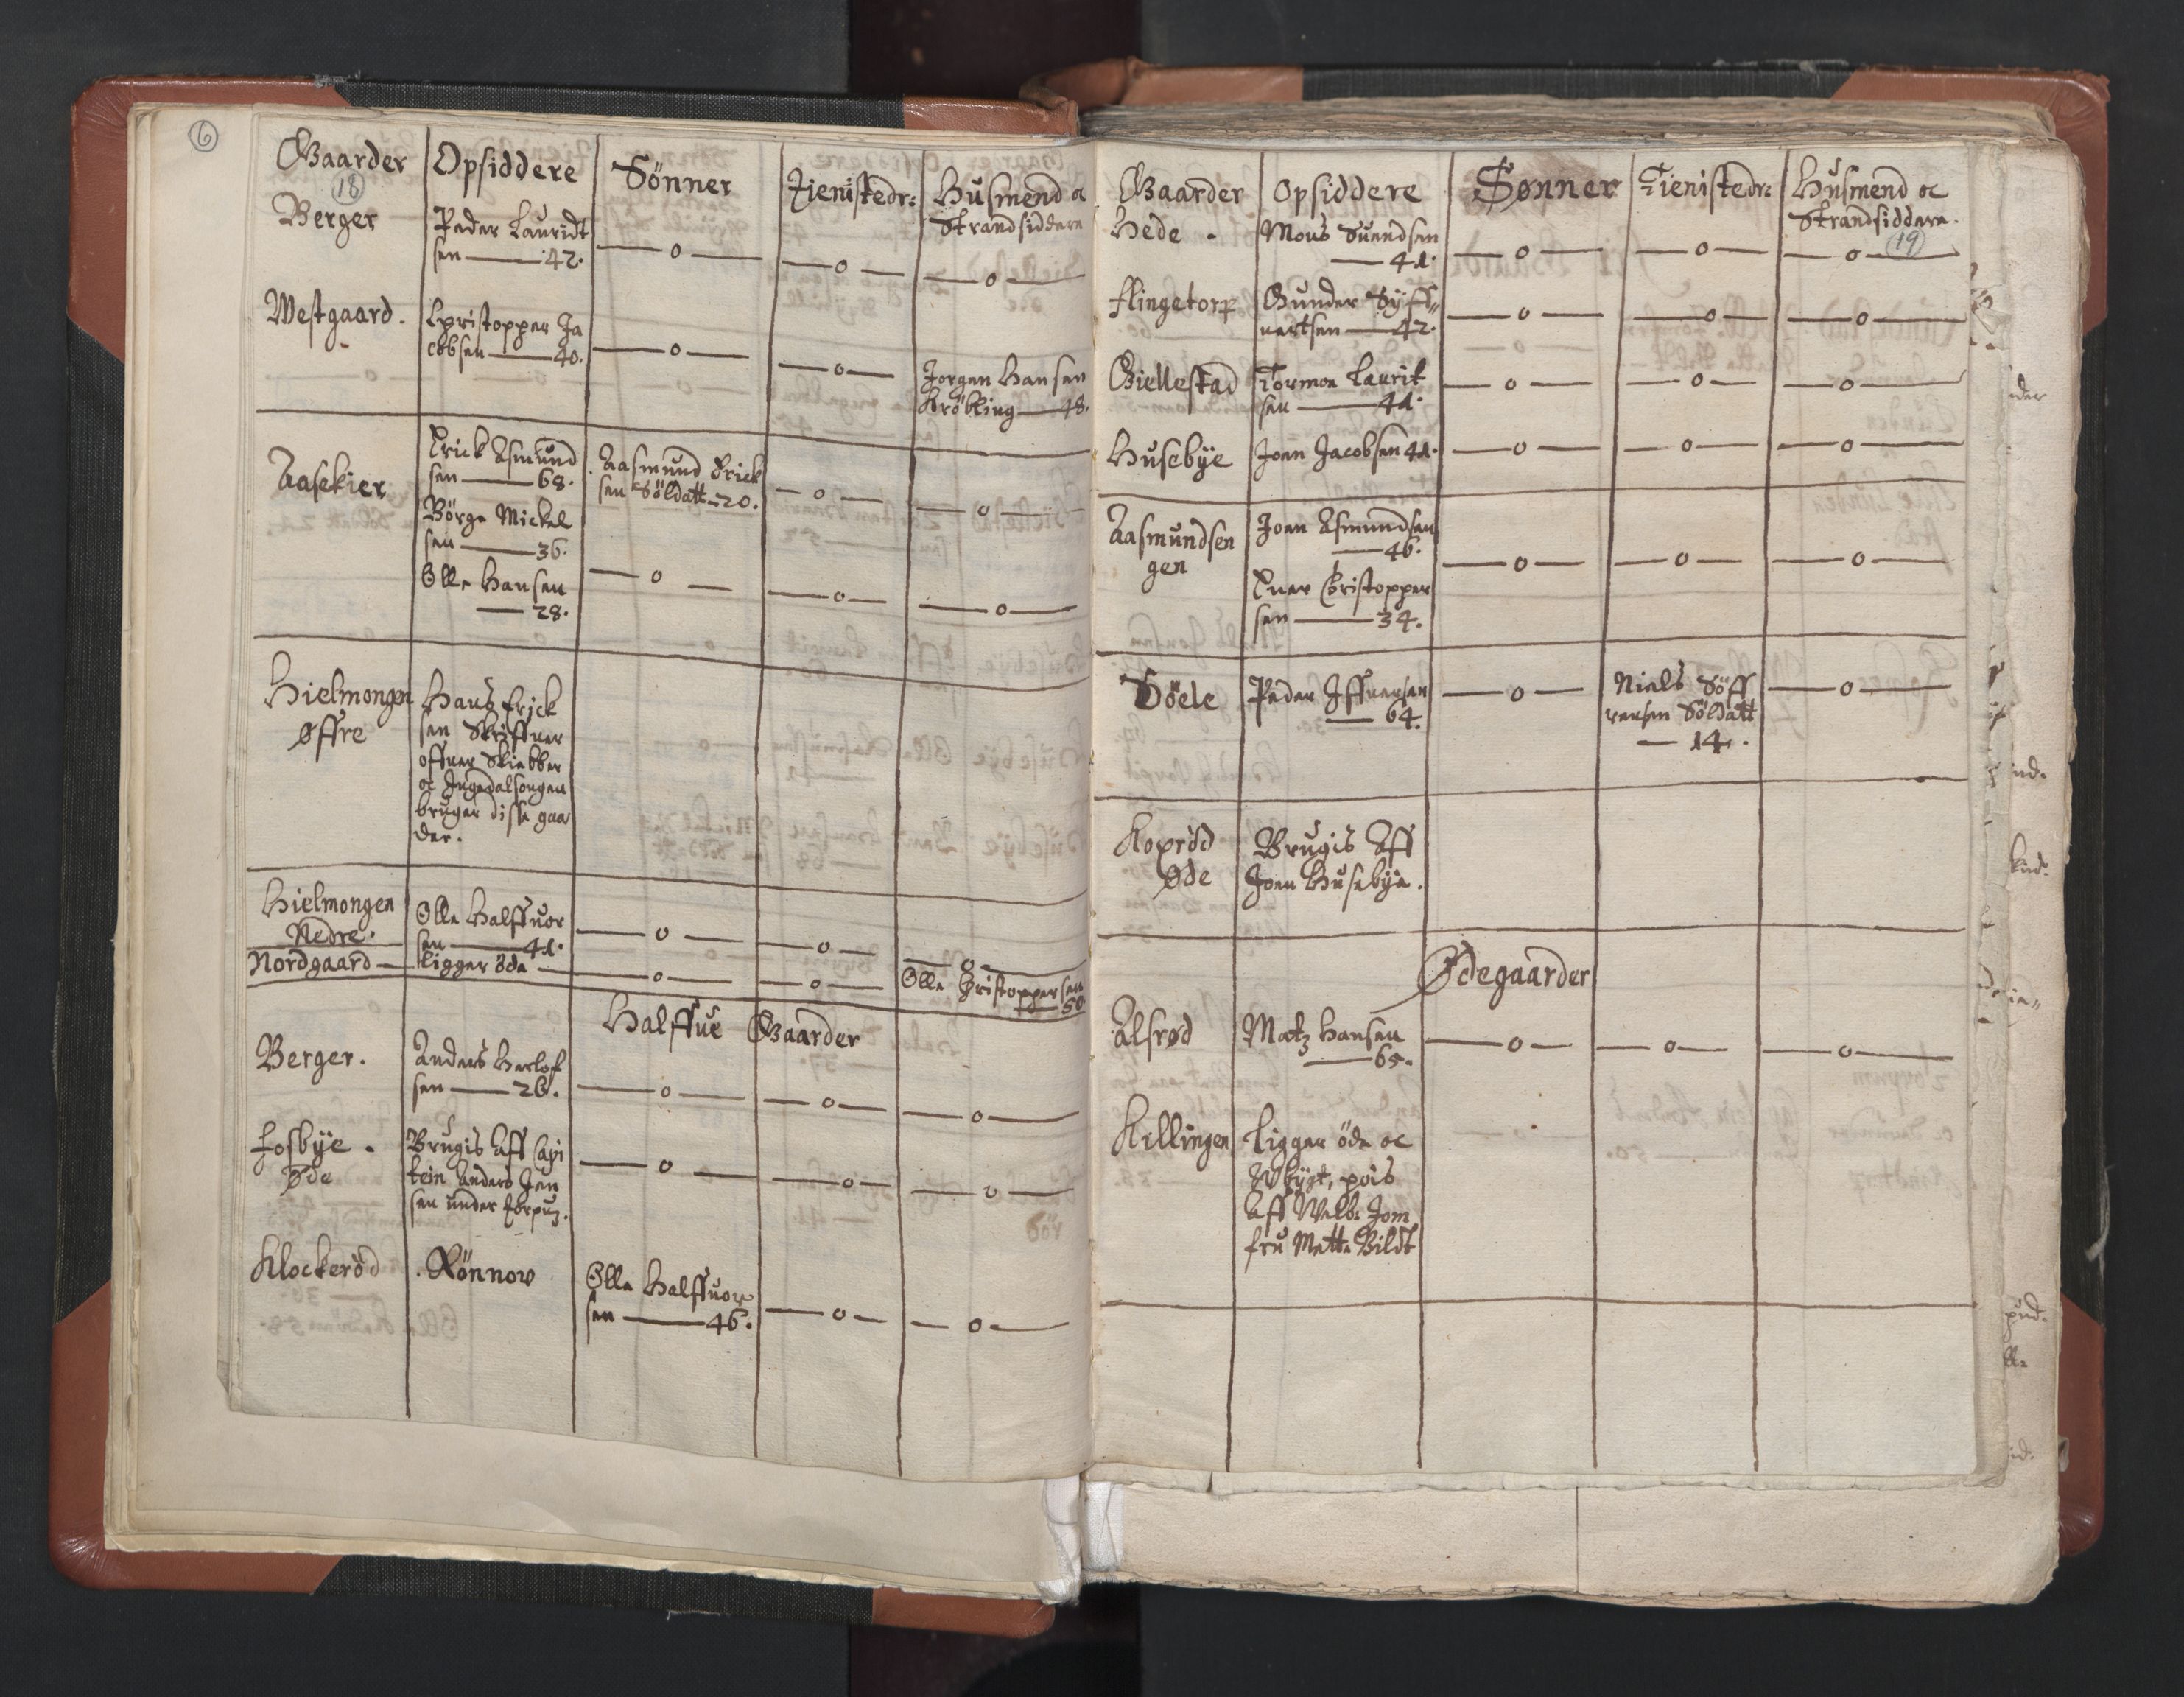 6
Gaarder Opsiddere Sönner Tienistedr: Husmend oc
Strandsiddere
18
Berger Peder Lauridt
sen 42. o o o
Westgaard. Christopper Ja
cobsen 40. o o Jorgen Hansen
Kröbling 48.
Aasekier Erick Asmund
sen 68. Aasmund Erick
sen Söldatt 20. o o
Börge Mickel
sen 36.
Olle Hansen
28. o o o
Hielmongen
Øffre
Hans Erick
sen Skriffuer
offuer Skiebber
oc Ingedalsongen
bruger disse gaar
der.
Hielmongen
Nedre.
Olle Halffuor
sen 41. o o o
Nordgaard ligger öde o o Olle Christoppersen
50
Halffue Gaarder
Berger. Anders Herlof
sen 26. o o o
Fosbÿe.
Øde
Brugis Aff Capi
tein Anders Jen
sen under Forpun. o o o
Klockeröd . Rönnow Olle Halffuor
sen 46. o o
Gaarder Opsiddere Sønner Tienistedr: Husmend oc
Strandsiddere.
19
Hede . Mons Suendsen
41. o o o
Flingetorp Gunder Sÿff"
uertsen 42. o o o
Giellestad Tormon Laurit
sen 41. o o o
Husebÿe Joen Jacobsen 41. o o o
Aasmundsen
gen
Joen Asmundsen
46. o o o
Euer Christopper
sen 34.
Döele Peder Iffuersen
64. o Niels Söff
rensen Söldatt
14. o
Koxröd
Øde
Brugis Aff
Joen Husebÿe.
Ødegaarder
Alsrød Matz Hansen
65. o o o
Killingen Ligger öde oc
Wbÿgt, pois
Aff Welb: Jom
fru Mette Bildt